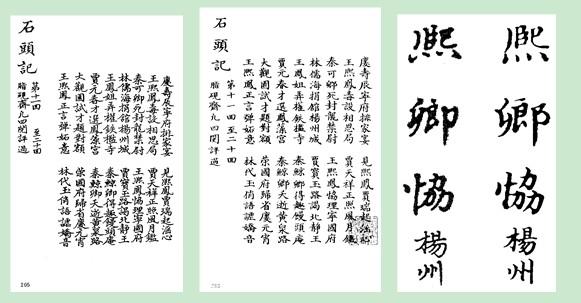 石頭記
第十一回 至二十回
脂硯齋凡四閱評過
慶壽辰寧府排家宴 見熙鳳賈瑞起淫心
王熙鳳毒設相思局 賈天祥正照風月鑑
秦可卿死封龍禁尉 王熙鳳協理寧國府
林儒海捐館楊州城 賈寶玉路謁北靜王
王鳳姐弄權鐵檻寺 秦鯨卿得趣饅頭庵
賈元春才選鳳藻宮 秦鯨卿夭逝黃泉路
大觀園試才題對額 榮國府歸省慶元宵
王熙鳳正言彈妒意 林代玉俏語謔嬌音
205
石頭記
第十一回至二十回
脂硯齋凡四閱評過
慶壽辰寧府排家宴 見熙鳳賈瑞起淫心
王熙鳳毒設相思局 賈天祥正照風月鑑
秦可卿死封龍禁尉 王熙鳳協理寧國府
林儒海捐館楊州城 賈寶玉路謁北靜王
王鳳姐弄權鐵檻寺 秦鯨卿得趣饅頭庵
賈元春才選鳳藻宮 秦鯨卿夭逝黃泉路
大觀園試才題對額 榮國府歸省慶元宵
王熙鳳正言彈妒意 林代玉俏語謔嬌音
熙 熙
卿 卿
協 協
楊州 楊州